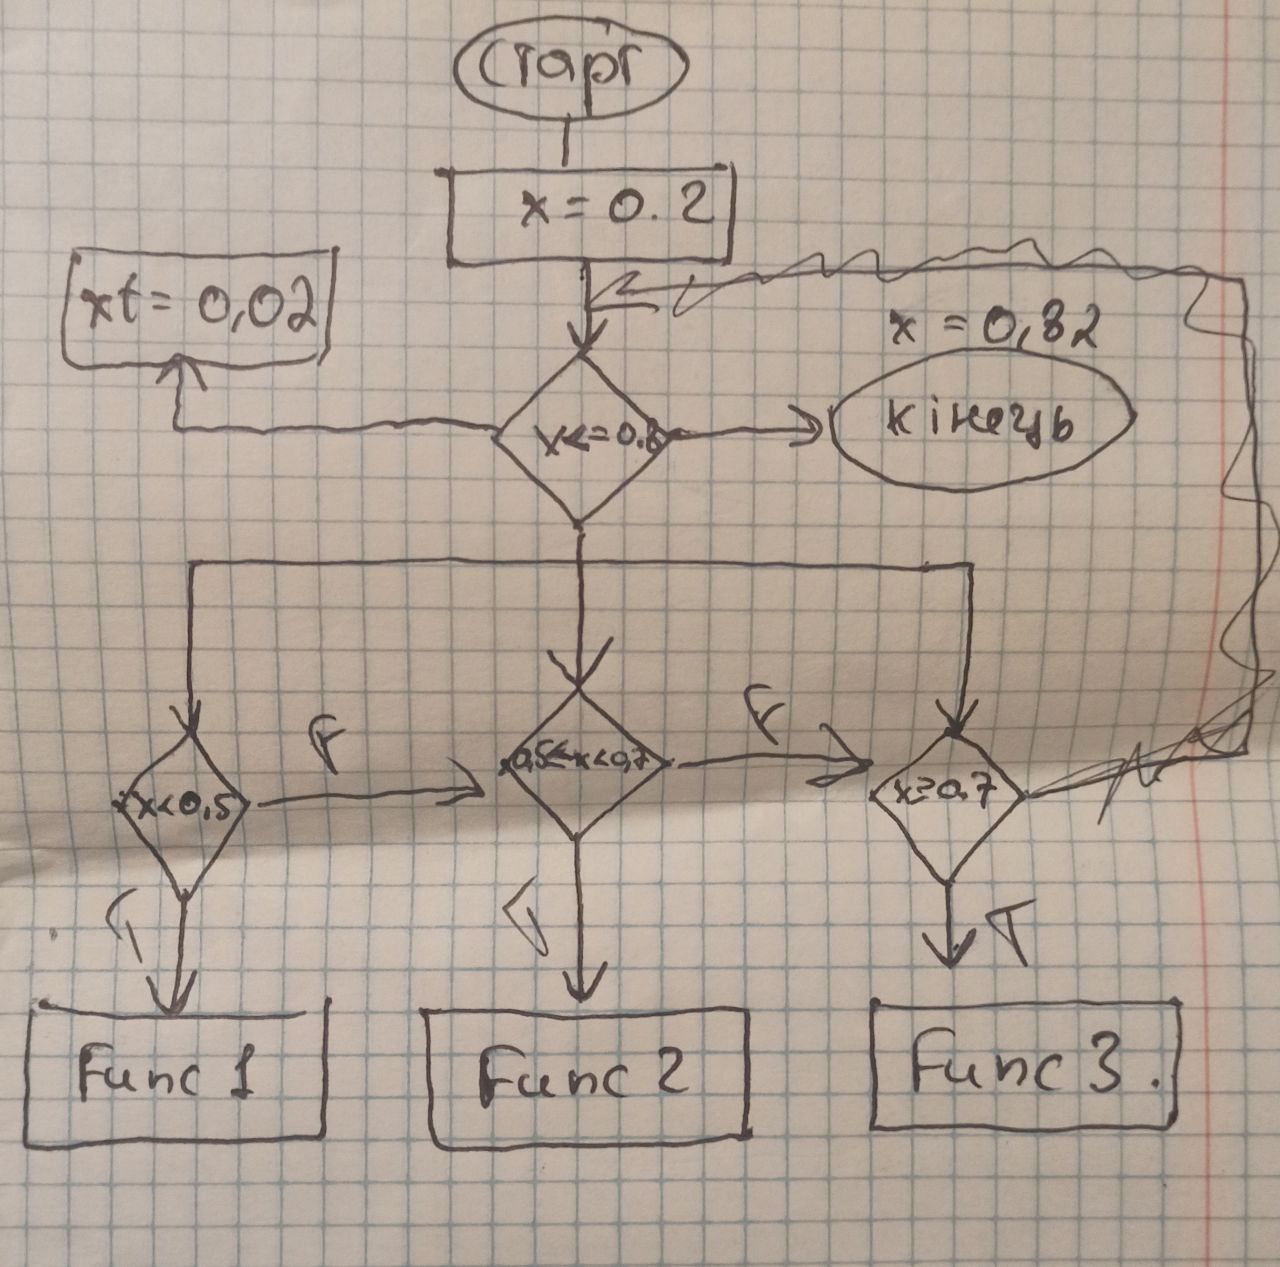 старт
x = 0.2
xt = 0,02
x = 0,82
x<=0.8
кінець
F
F
x<0,5
0,5≤x<0,7
x≥0.7
T
T
T
Func 1
Func 2
Func 3.